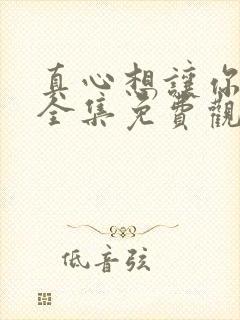 真心想讓你
全集免費觀
低音弦